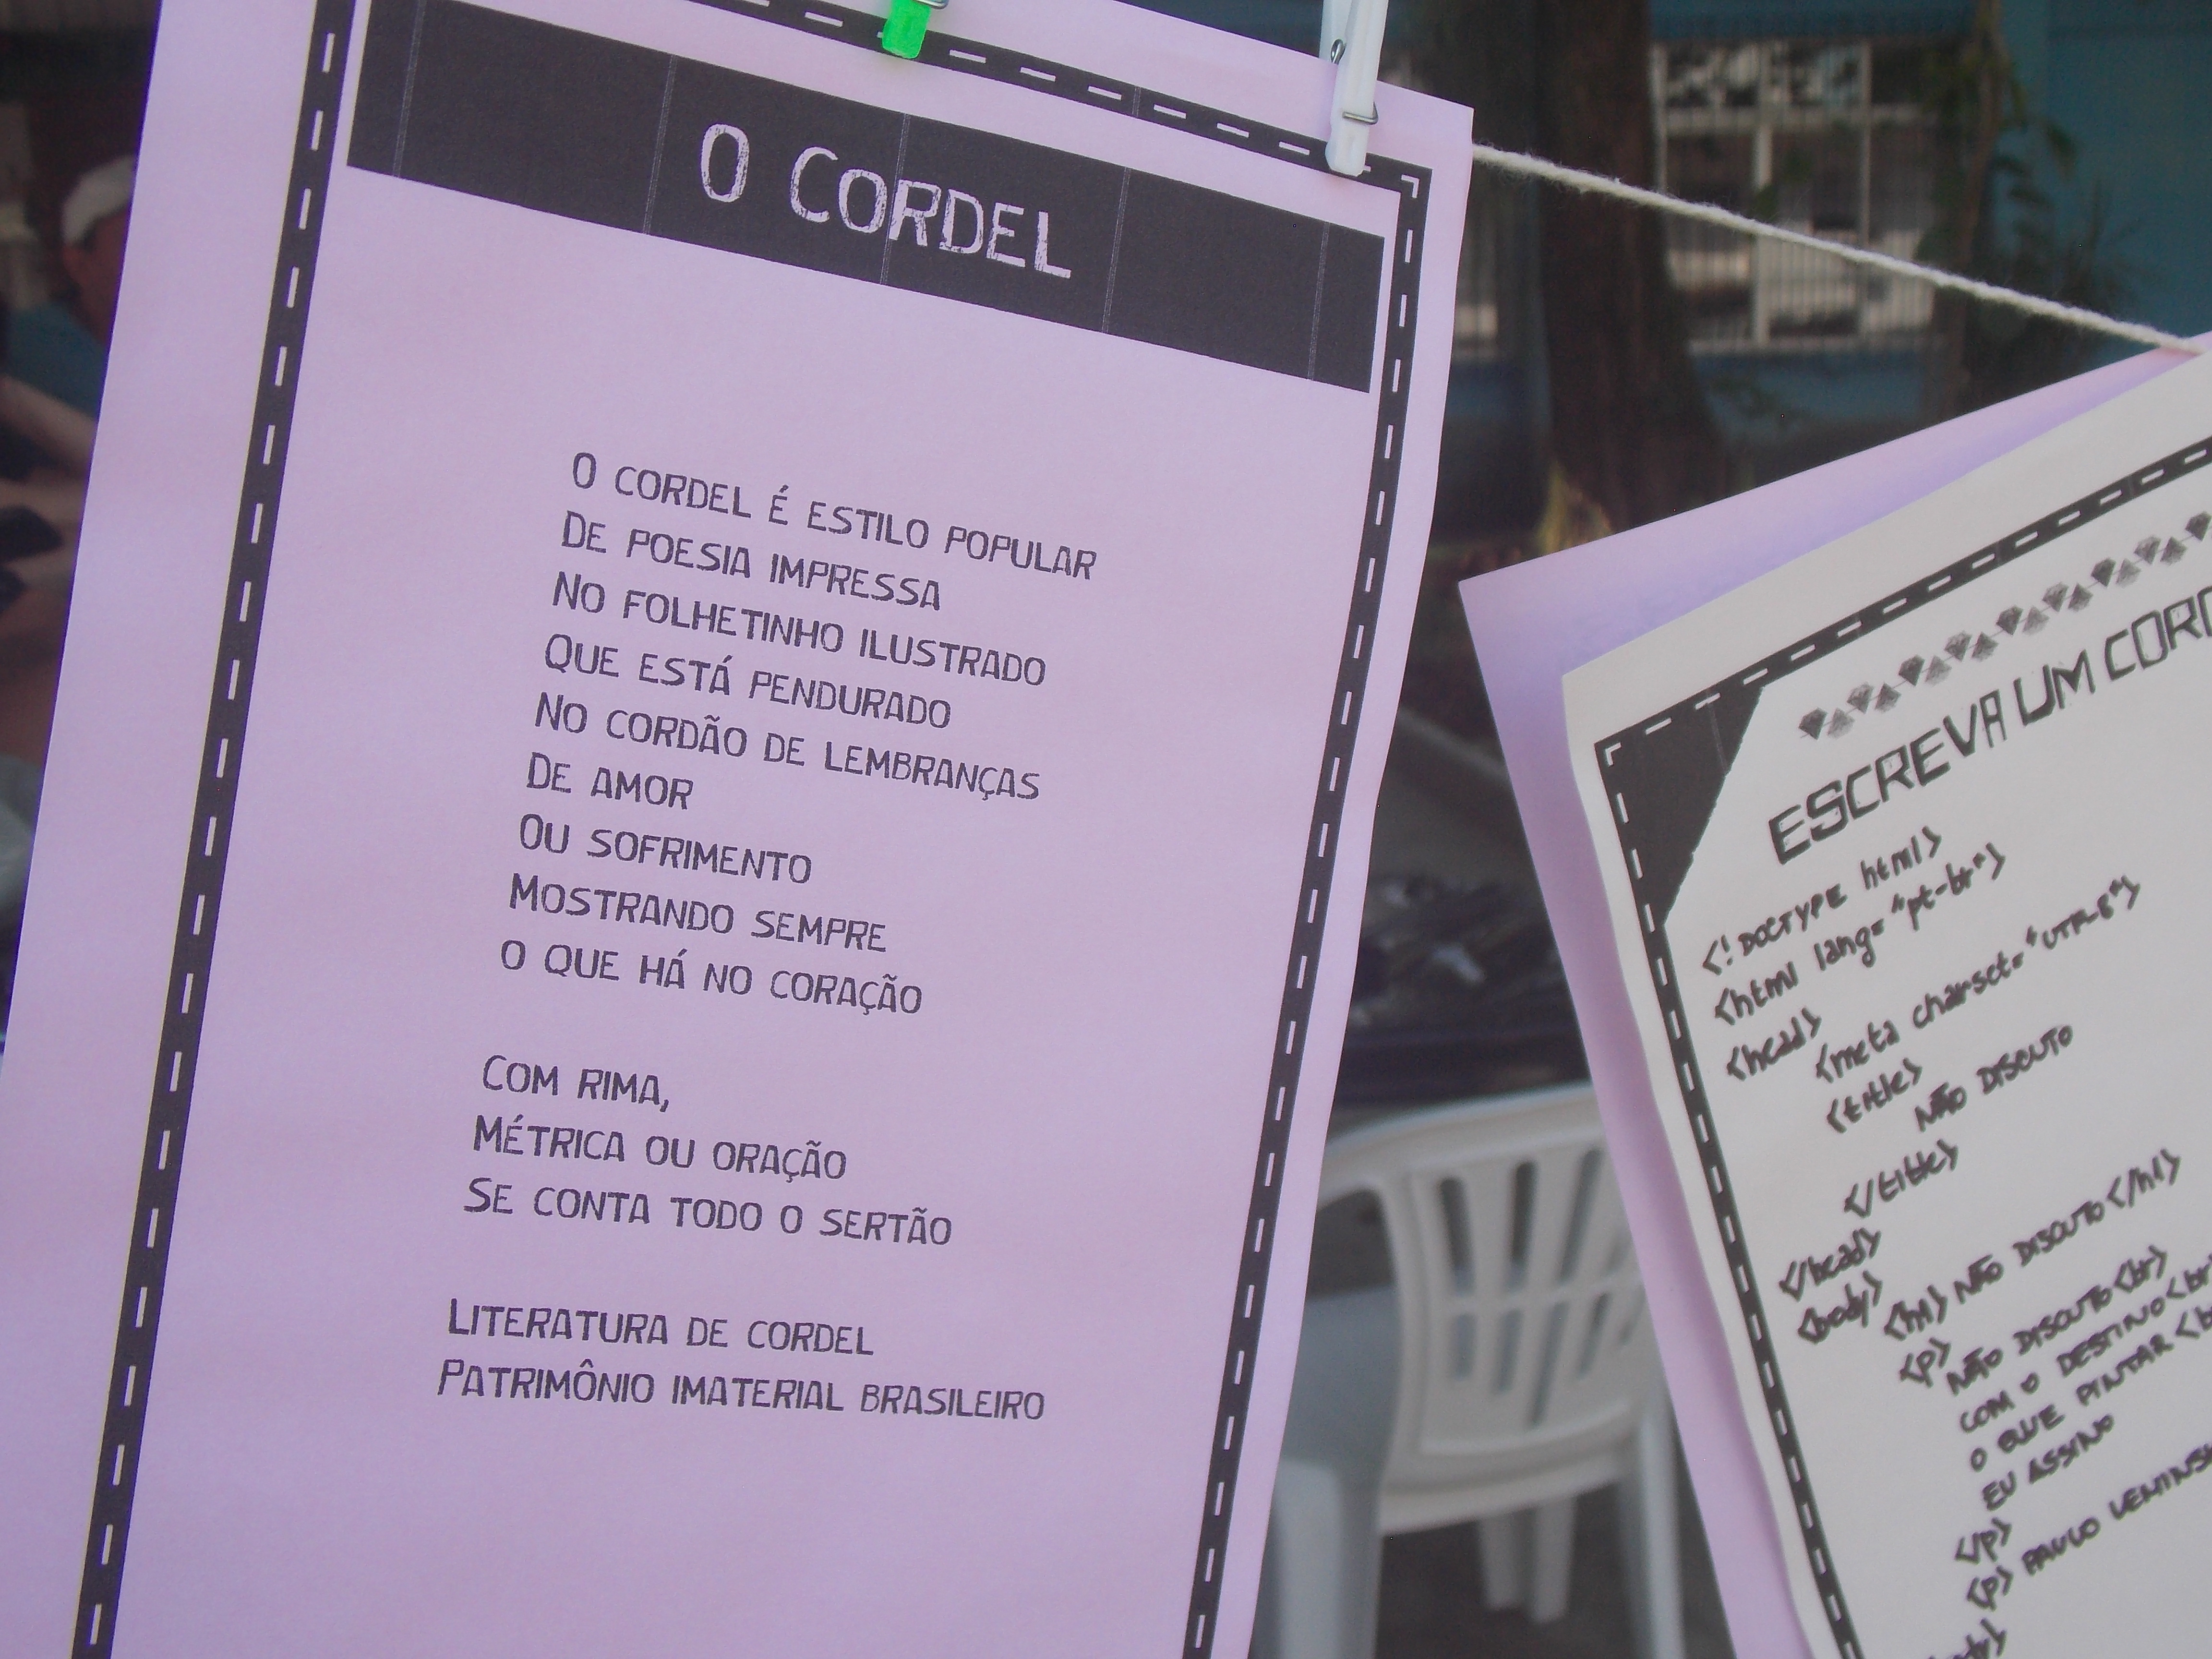 O CORDEL
O CORDEL É ESTILO POPULAR
DE POESIA IMPRESSA
NO FOLHETINHO ILUSTRADO
QUE ESTÁ PENDURADO
NO CORDÃO DE LEMBRANÇAS
DE AMOR
OU SOFRIMENTO
MOSTRANDO SEMPRE
O QUE HÁ NO CORAÇÃO
COM RIMA,
MÉTRICA OU ORAÇÃO
SE CONTA TODO O SERTÃO
LITERATURA DE CORDEL
PATRIMÔNIO IMATERIAL BRASILEIRO
ESCREVA UM
<!DOCTYPE html>
<html lang="pt-br">
<head>
<meta charset="UTF-8">
<title>
NÃO DISCUTO
</title>
</head>
<body>
<h1> NÃO DISCUTO </h1>
<p>
NÃO DISCUTO <br>
COM O DESTINO <br
O QUE PINTAR <b
EU ASSINO
</p>
<p> PAULO